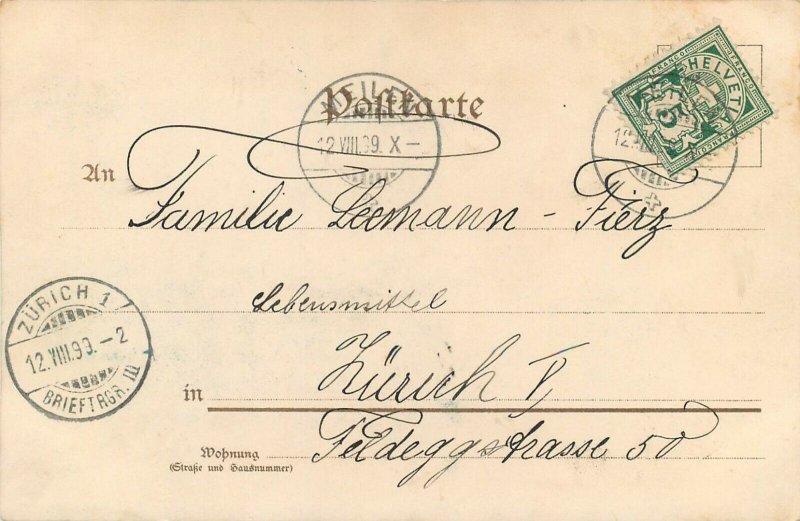 Postkarte
FRANCO
HELVETIA
5
12.VIII.99. X–
12.
An
Familie Leemann - Fierz
Lebensmittel
ZÜRICH 1
12.VIII.99. – 2
BRIEFTRGR. III
in Zürich V
Feldeggstrasse 50
Wohnung
(Straße und Hausnummer)